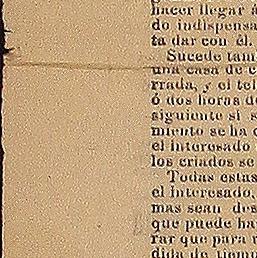 hacer llegar á
do indispensa
ta dar con él.
Sucede tam
una casa de c
rrada, y el tel
ó dos horas de
siguiente si s
miento se ha c
el interesado
los criados se
Todas estas
el interesado,
mas sean des
que puede ha
rar que para r
dida de tiemp